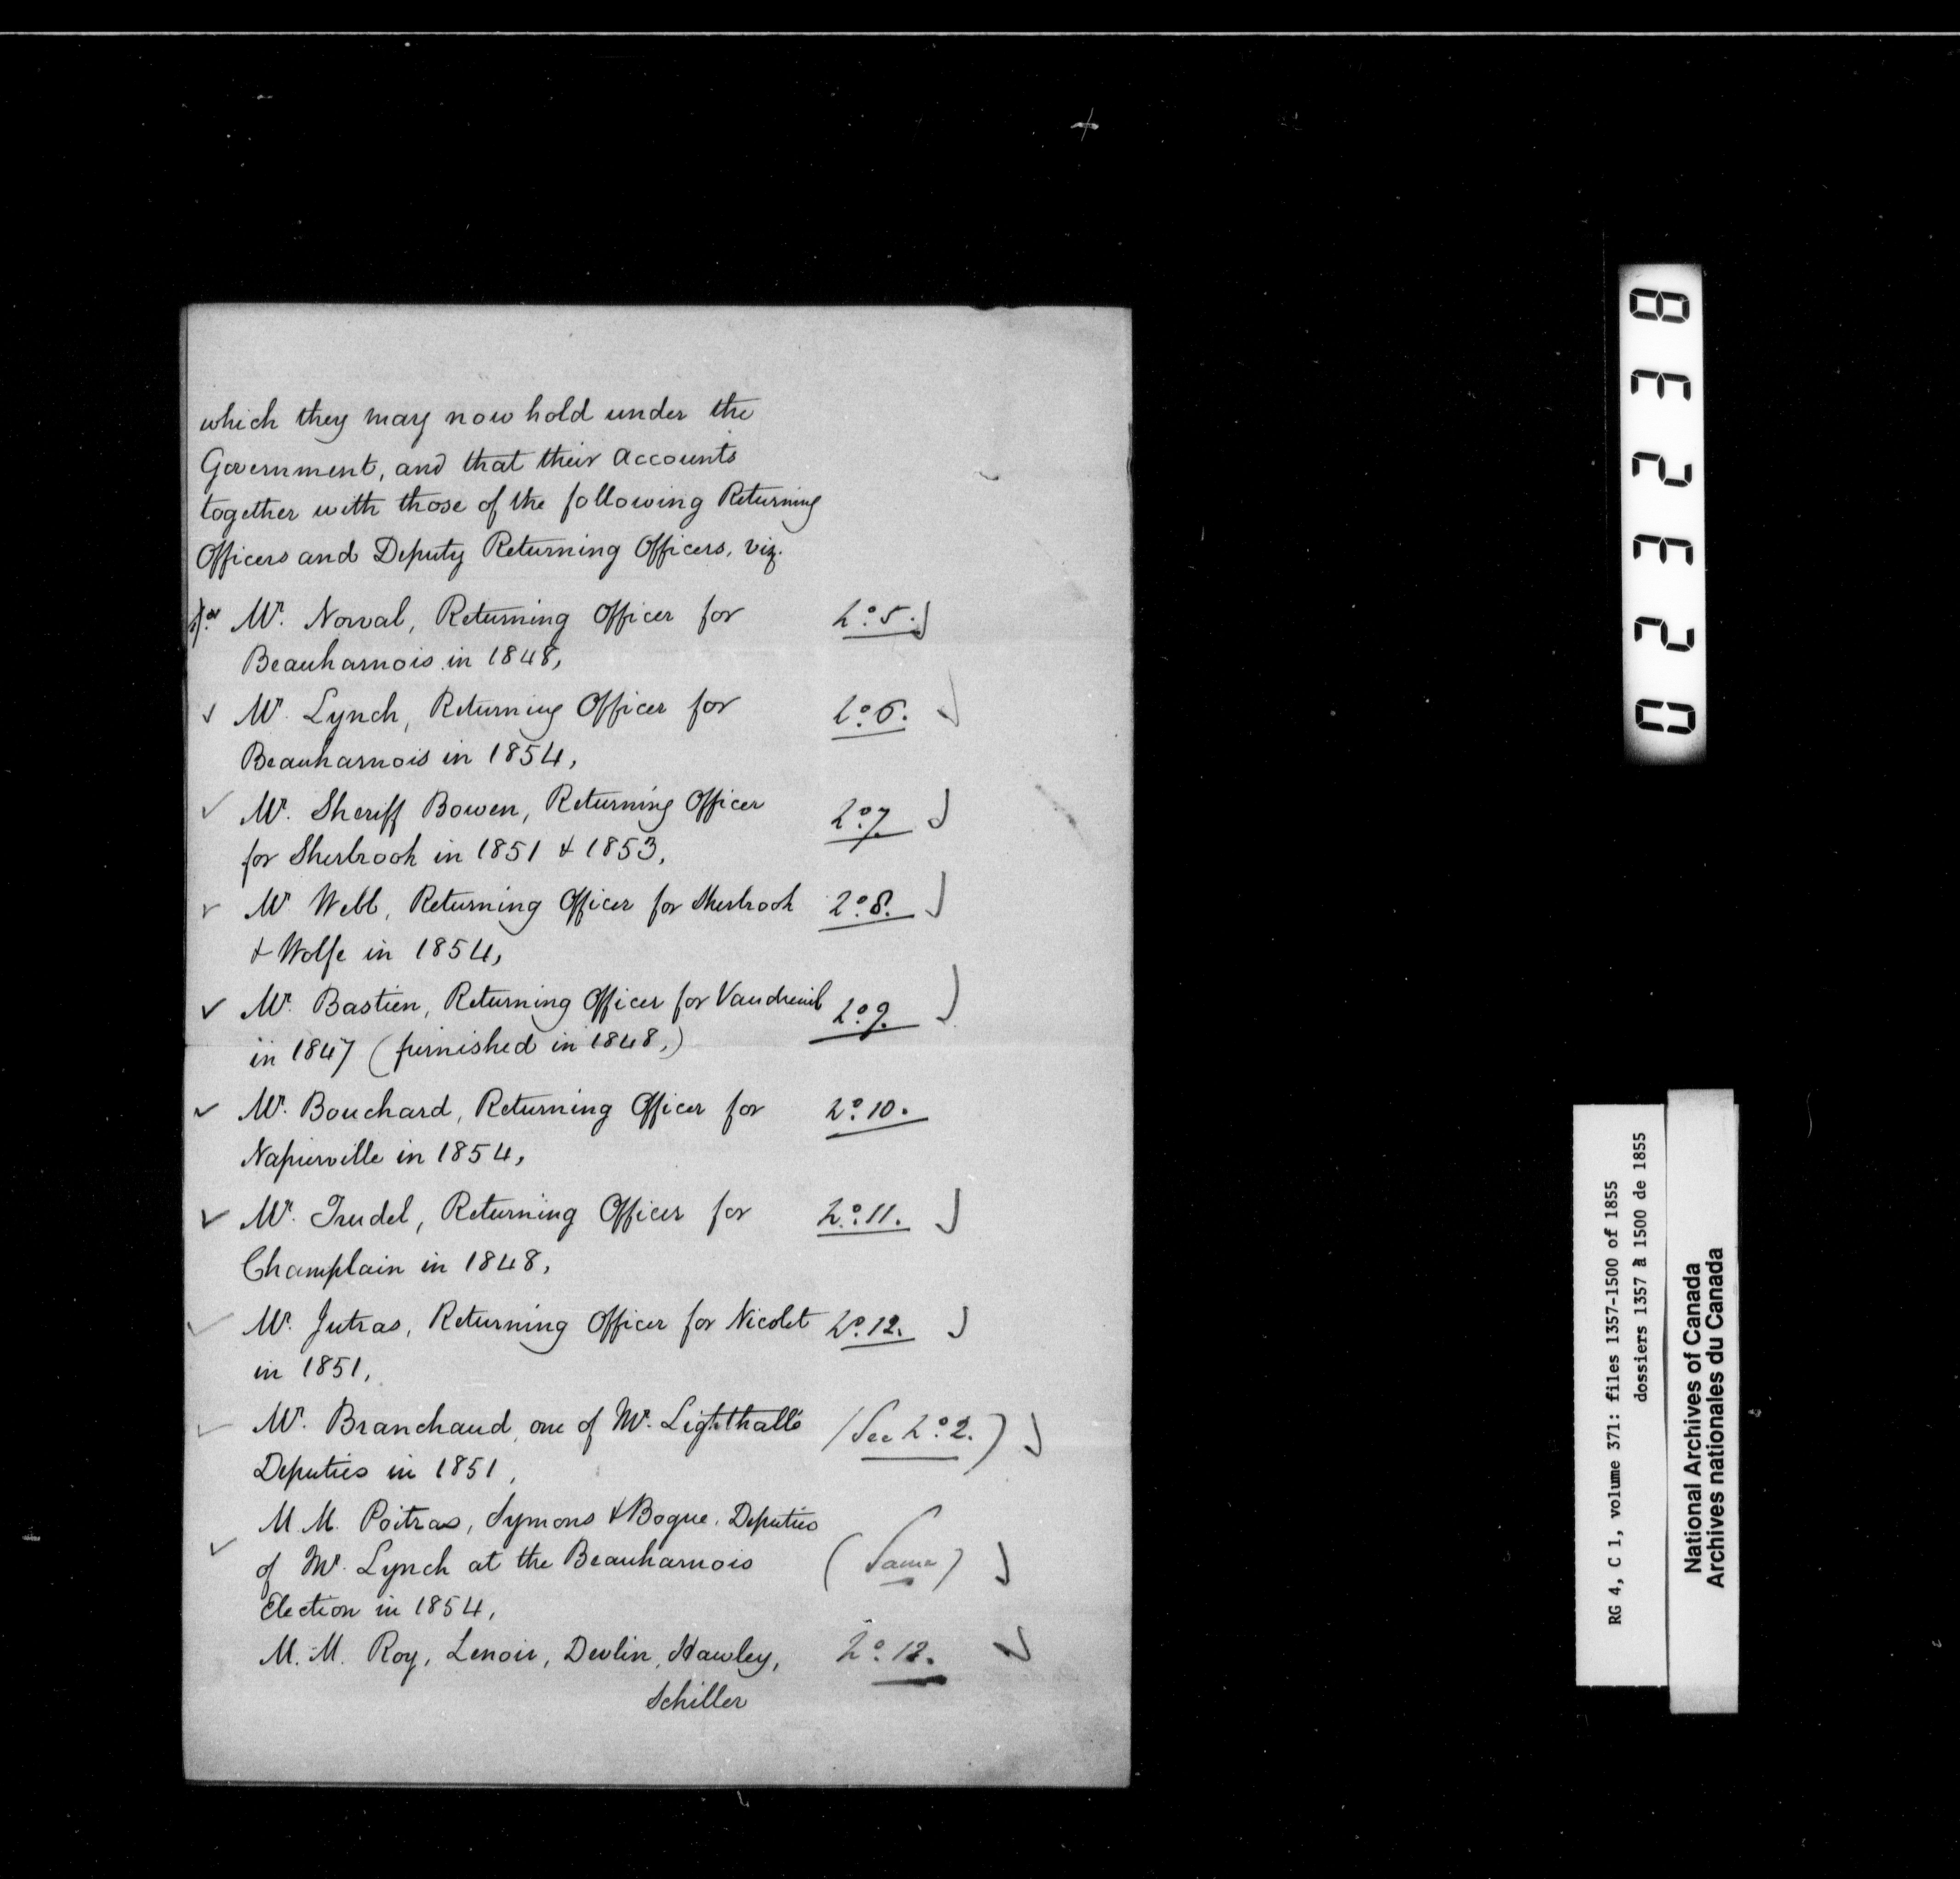 which they may now hold under the
Government, and that their Accounts
together with those of the following Returning
Officers and Deputy Returning Officers, viz.
Mr. Norval, Returning Officer for No. 5.
Beauharnois in 1848,
Mr. Lynch, Returning Officer for No. 6.
Beauharnois in 1854,
Mr. Sheriff Bowen, Returning Officer No. 7.
for Sherbrook in 1851 & 1853,
Mr Webb, Returning Officer for Sherbrook No. 8.
& Wolfe in 1854,
Mr. Bastien, Returning Officer for Vaudreuil No. 9.
in 1847 (furnished in 1848,)
Mr. Bouchard, Returning Officer for No. 10.
Napierville in 1854,
Mr. Trudel, Returning Officer for No. 11.
Champlain in 1848,
Mr. Jutras, Returning Officer for Nicolet No. 12.
in 1851,
Mr. Branchaud, one of Mr. Lighthall's (See No. 2.)
Deputies in 1851,
M. M. Poitras, Symons & Bogue, Deputies
of Mr. Lynch at the Beauharnois (Same)
Election in 1854,
M. M. Roy, Lenoir, Devlin, Hawley, No. 12.
Schiller
023238
RG 4, C 1, volume 371: files 1357-1500 of 1855
dossiers 1357 à 1500 de 1855
National Archives of Canada
Archives nationales du Canada